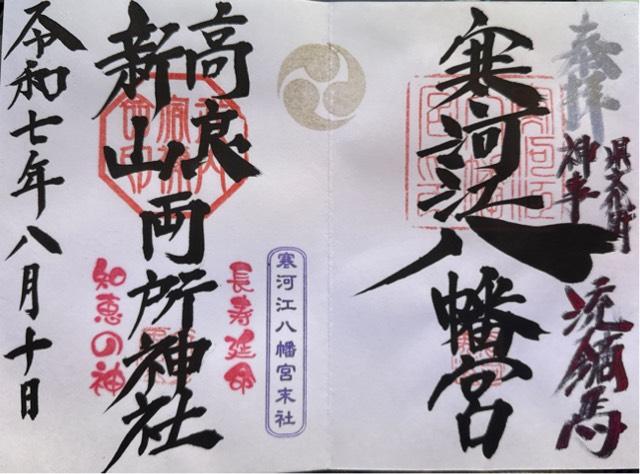 奉拝
県文化財
神事
流鏑馬
寒河江八幡宮
寒河江八幡宮末社
長寿延命
高良
新山両所神社
知恵の神
令和七年八月十日